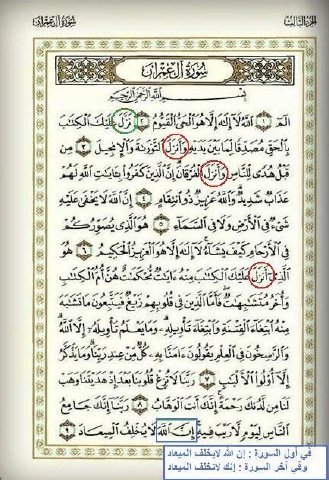 سورة آل عمران
الجزء الثالث
سورة آل عمران
بسم الله الرحمن الرحيم
الم ١ الله لا إله إلا هو الحي القيوم ٢ نزل عليك الكتاب
بالحق مصدقا لما بين يديه وأنزل التوراة والإنجيل ٣ من
قبل هدى للناس وأنزل الفرقان إن الذين كفروا بآيات الله لهم
عذاب شديد والله عزيز ذو انتقام ٤ إن الله لا يخفى عليه
شيء في الأرض ولا في السماء ٥ هو الذي يصوركم
في الأرحام كيف يشاء لا إله إلا هو العزيز الحكيم ٦ هو
الذي أنزل عليك الكتاب منه آيات محكمات هن أم الكتاب
وأخر متشابهات فأما الذين في قلوبهم زيغ فيتبعون ما تشابه
منه ابتغاء الفتنة وابتغاء تأويله وما يعلم تأويله إلا الله
والراسخون في العلم يقولون آمنا به كل من عند ربنا وما يذكر
إلا أولوا الألباب ٧ ربنا لا تزغ قلوبنا بعد إذ هديتنا وهب
لنا من لدنك رحمة إنك أنت الوهاب ٨ ربنا إنك جامع
الناس ليوم لا ريب فيه إن الله لا يخلف الميعاد ٩
في أول السورة : إن الله لايخلف الميعاد
وفي آخر السورة : إنك لاتخلف الميعاد